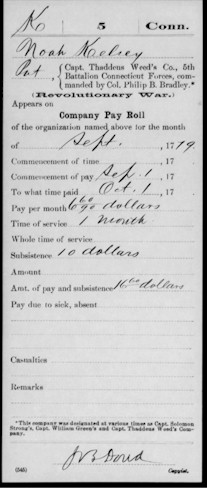 K | 5 | Conn.
Noah Kelsey
Pvt, { Capt. Thaddeus Weed's Co., 5th
Battalion Connecticut Forces, com-
manded by Col. Philip B. Bradley.*
(Revolutionary War.)
Appears on
Company Pay Roll
of the organization named above for the month
of Sept., 1779.
Commencement of time , 17
Commencement of pay Sep. 1 , 17
To what time paid Oct. 1 , 17
Pay per month 6 60/90 dollars
Time of service 1 month
Whole time of service
Subsistence 10 dollars
Amount
Amt. of pay and subsistence 16 60 dollars
Pay due to sick, absent
Casualties
Remarks
*This company was designated at various times as Capt. Solomon
Strong's, Capt. William Green's and Capt. Thaddeus Weed's Com-
pany.
(545) Copyist.